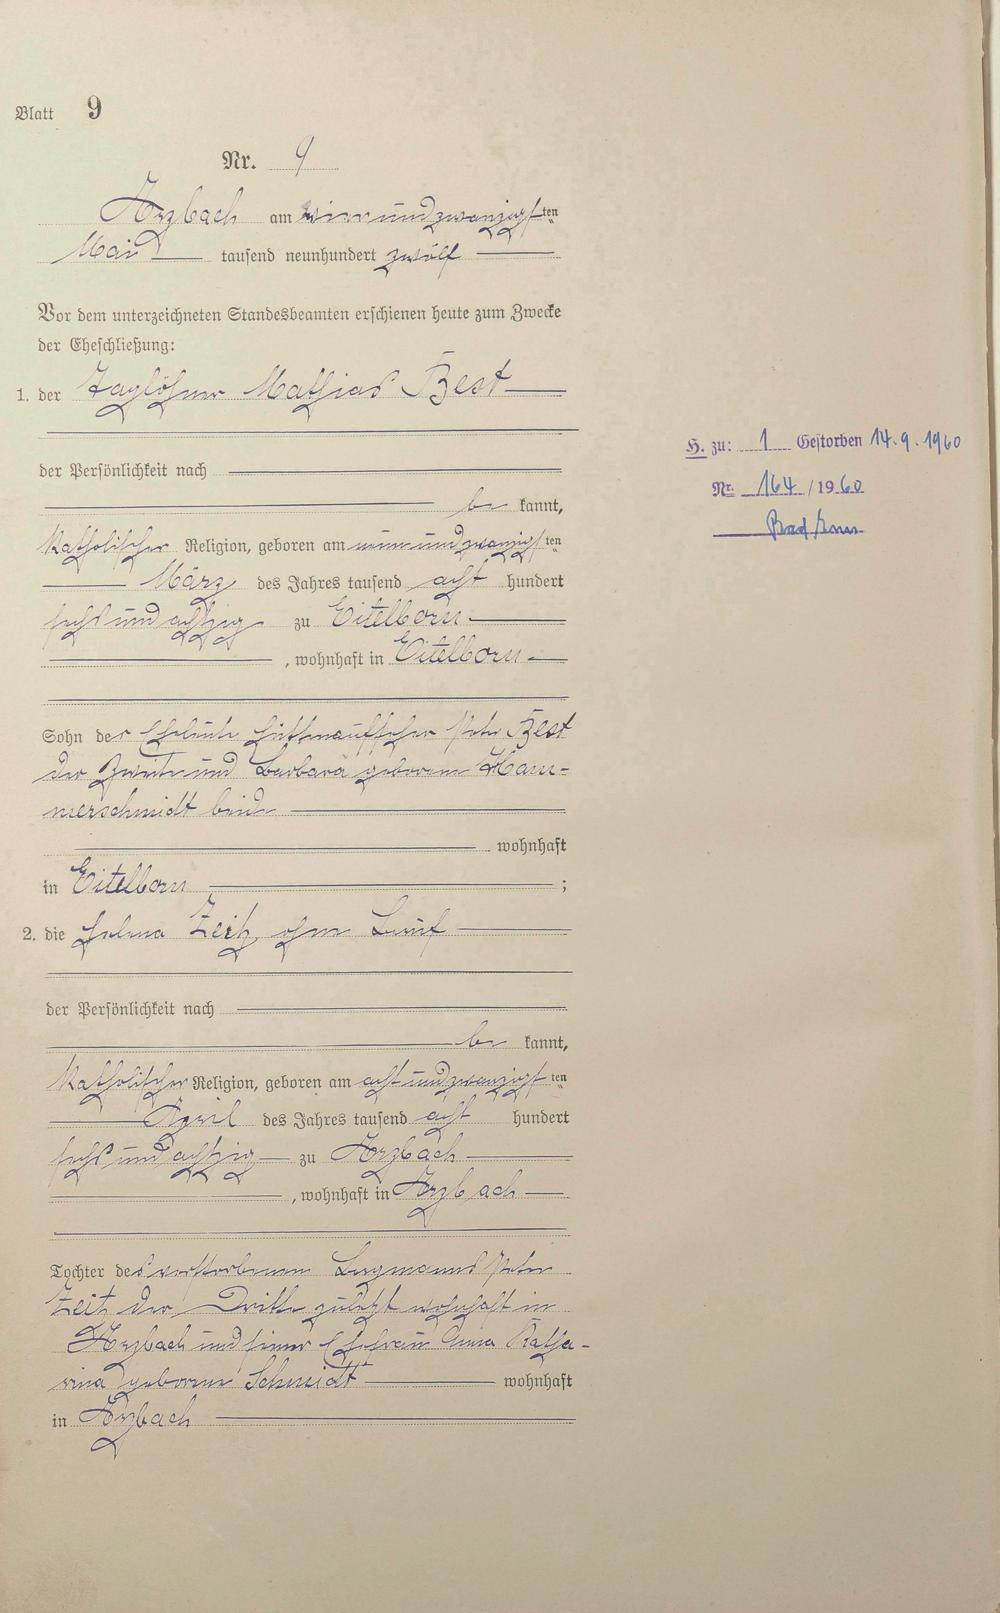 Blatt 9
Nr. 9
Arzbach am vierundzwanzigsten
Mai tausend neunhundert zwölf
Vor dem unterzeichneten Standesbeamten erschienen heute zum Zwecke
der Eheschließung:
1. der Taglöhner Mathias Best
der Persönlichkeit nach
be kannt,
katholischer Religion, geboren am neunundzwanzigsten
März des Jahres tausend acht hundert
sechsundachtzig zu Eitelborn
, wohnhaft in Eitelborn
Sohn der Eheleute Hüttenaufseher Peter Best
der Zweite und Barbara geborene Ham-
merschmidt beide
wohnhaft
in Eitelborn ;
2. die Helena Zeitz, ohne Beruf
der Persönlichkeit nach
be kannt,
katholischer Religion, geboren am achtundzwanzigsten
April des Jahres tausend acht hundert
sechsundachtzig zu Arzbach
, wohnhaft in Arzbach
Tochter des verstorbenen Bergmanns Peter
Zeitz der Dritte zuletzt wohnhaft in
Arzbach und seiner Ehefrau Anna Katha-
rina geborene Schmidt wohnhaft
in Arzbach
H. zu: 1 Gestorben 14.9.1960
Nr. 164 / 1960
Bad Ems